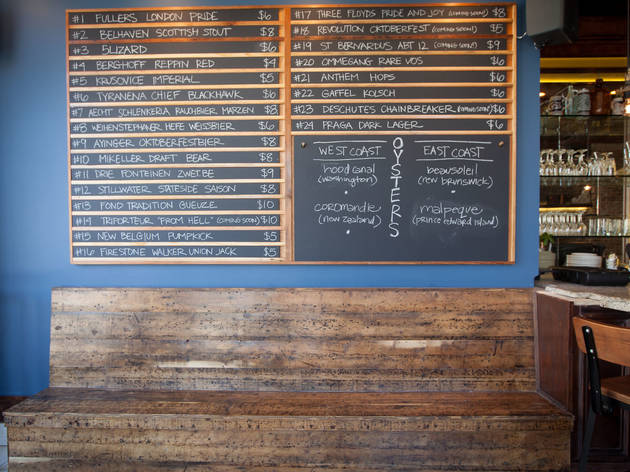 #1 FULLERS LONDON PRIDE $6
#2 BELHAVEN SCOTTISH STOUT $8
#3 5LIZARD $6
#4 BERGHOFF REPPIN RED $4
#5 KRUSOVICE IMPERIAL $5
#6 TYRANENA CHIEF BLACKHAWK $6
#7 AECHT SCHLENKERLA RAUCHBIER, MARZEN $8
#8 WEIHENSTEPHANER HEFE WEISSBIER $6
#9 AYINGER OKTOBERFESTBIER $8
#10 MIKELLER DRAFT BEAR $8
#11 DRIE FONTEINEN ZWET.BE $9
#12 STILLWATER STATESIDE SAISON $8
#13 FOND TRADITION GUEUZE $10
#14 TRIPORTEUR "FROM HELL" (COMING SOON) $10
#15 NEW BELGIUM PUMPKICK $5
#16 FIRESTONE WALKER UNION JACK $5
#17 THREE FLOYDS PRIDE AND JOY (COMING SOON) $8
#18 REVOLUTION OKTOBERFEST (COMING SOON) $5
#19 ST BERNARDUS ABT 12 (COMING SOON) $9
#20 OMMEGANG RARE VOS $6
#21 ANTHEM HOPS $6
#22 GAFFEL KOLSCH $6
#23 DESCHUTES CHAINBREAKER (COMING SOON) $6
#24 PRAGA DARK LAGER $6
OYSTERS
WEST COAST
hood canal
(washington)
coromandle
(new zealand)
EAST COAST
beausoleil
(new brunswick)
malpeque
(prince edward island)